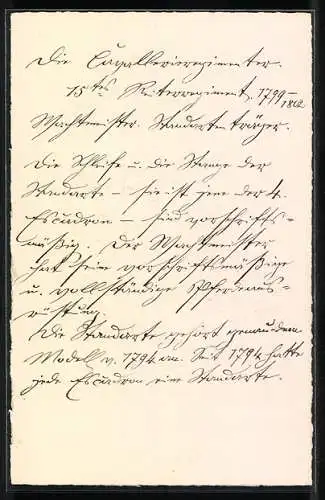 Die Cavallerieregimenter.
15tes Reiterregiment, 1799–
1812
Wachtmeister. Standartenträger.
Die Schleife u. die Stange der
Standarte – sie ist jene der 4.
Escadron – sind vorschrifts-
mäßig. Der Wachtmeister
hat seine vorschriftsmäßige
u. vollständige Pferdeaus-
rüstung.
Die Standarte gehört genau dem
Modell v. 1794 an. Seit 1794 hatte
jede Escadron eine Standarte.